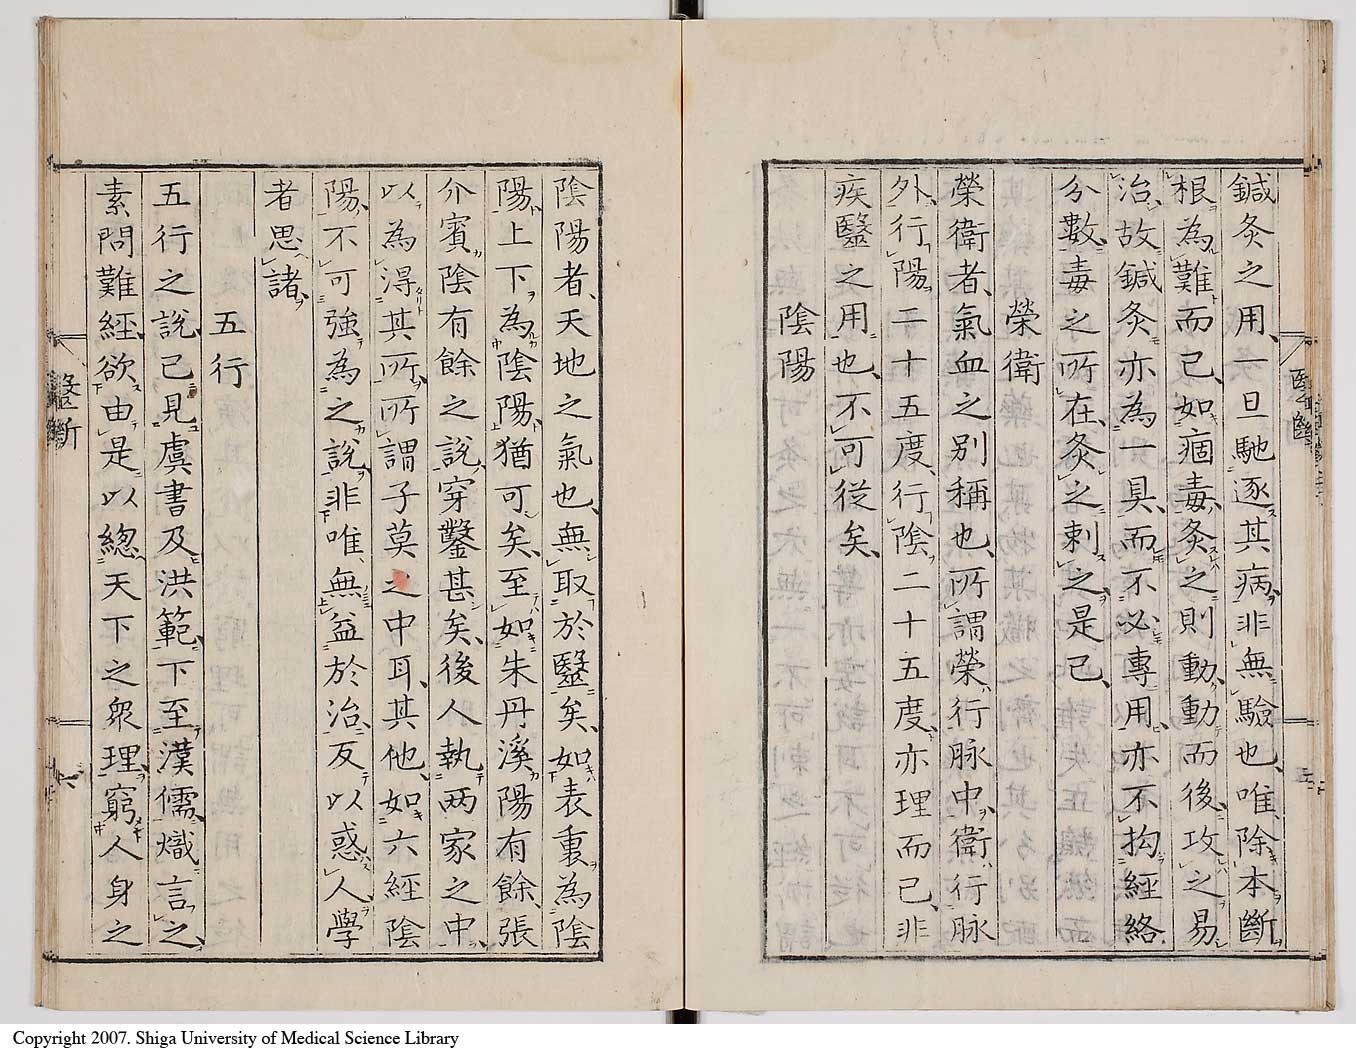 鍼灸之用、一旦馳逐其病、非無驗也、唯除本斷
根為難而已、如痼毒、灸之則動、動而後攻之易
治、故鍼灸亦為一具、而不必專用、亦不拘經絡
分數、毒之所在、灸之刺之是已、
榮衛
榮衛者、氣血之別稱也、所謂榮行脉中、衛行脉
外、行陽二十五度、行陰二十五度、亦理而已、非
疾醫之用也、不可從矣、
陰陽
陰陽者、天地之氣也、無取於醫矣、如表裏為陰
陽、上下為陰陽、猶可矣、至如朱丹溪陽有餘、張
介賓陰有餘之說、穿鑿甚矣、後人執兩家之中、
以為得其所、所謂子莫之中耳、其他、如六經陰
陽、不可強為之說、非唯、無益於治、反以惑人、學
者思諸、
五行
五行之說、已見虞書及洪範、下至漢儒熾言之、
素問難經、欲由是以總天下之衆理、窮人身之
醫斷
六
Copyright 2007. Shiga University of Medical Science Library